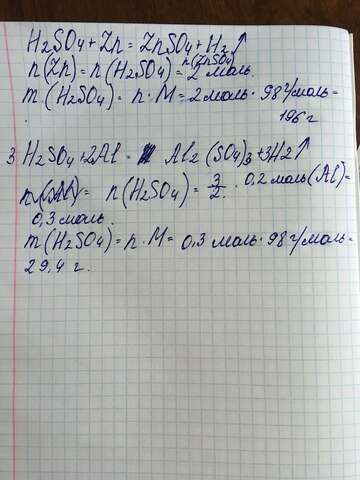 H₂SO₄ + Zn = ZnSO₄ + H₂↑
n(Zn) = n(H₂SO₄) = n(ZnSO₄) 2 моль.
m(H₂SO₄) = n · M = 2 моль · 98 г/моль =
196 г
3 H₂SO₄ + 2Al = Al₂(SO₄)₃ + 3H2↑
n(H₂SO₄) = 3/2 · 0,2 моль (Al) =
0,3 моль.
m(H₂SO₄) = n · M = 0,3 моль · 98 г/моль =
29,4 г.